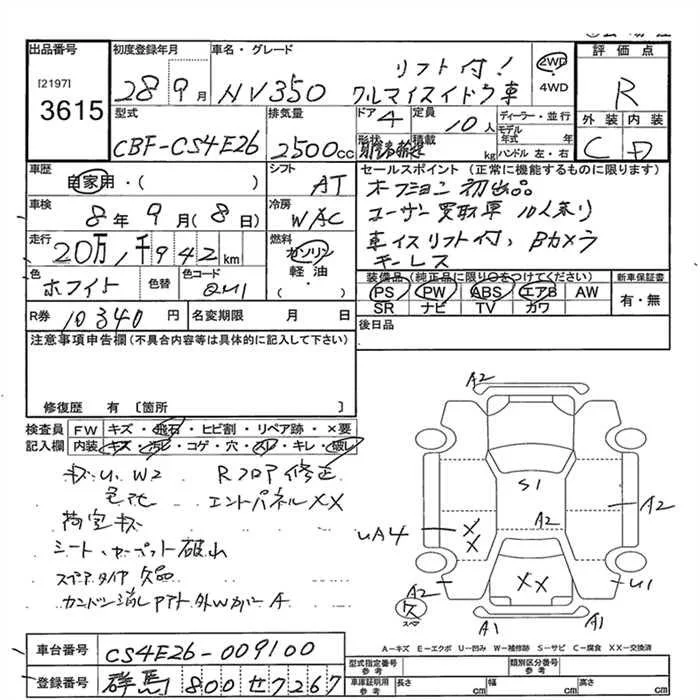 出品番号
[2197]
3615
初度登録年月
28 9月
車名・グレード
NV350
リフト付!
クルマイスイドウ車
2WD
4WD
評価点
R
外装 内装
C D
型式
CBF-CS4E26
排気量
2500cc
ドア
4
定員
10人
形状
積載
kg
ディーラー・並行
モデル年式 年
ハンドル 左・右
車歴
自家用・( )
シフト
AT
車検
8年9月(8日)
冷房
WAC
走行
20万,千942km
燃料
ガソリン
軽油
( )
色
ホワイト
色替
色コード
QM1
R券 10340円
名変期限 月 日
セールスポイント (正常に機能するものに限ります)
オプション 初出品
ユーザー買取車 10人乗り
車イスリフト付、Bカメラ
キーレス
装備品(純正品に限り○をつけてください)
PS PW ABS エアB AW
SR ナビ TV カワ
新車保証書
有・無
後日品
注意事項申告欄(不具合内容等は具体的に記入して下さい)
修復歴 有 〔箇所 〕
検査員記入欄
FW キズ・飛石・ヒビ割・リペア跡・×要
内装 キズ・汚レ・コゲ・穴・スレ・キレ・破レ
キズU W2 Rフロア修正
エンドパネルXX
荷室キズ
シート、カーペット破れ
スペアタイヤ欠品
A2
S1
A2
A2
UA4
X
X
XX
A2
U1
欠
スペア
A1
A1
A−キズ E−エクボ U−凹み W−補修跡 S−サビ C−腐食 XX−交換済
車台番号
CS4E26-009100
登録番号
群馬 800 せ 7267
型式指定番号
参考
類別区分番号
参考
車庫証明用
参考
長さ cm
幅 cm
高さ cm